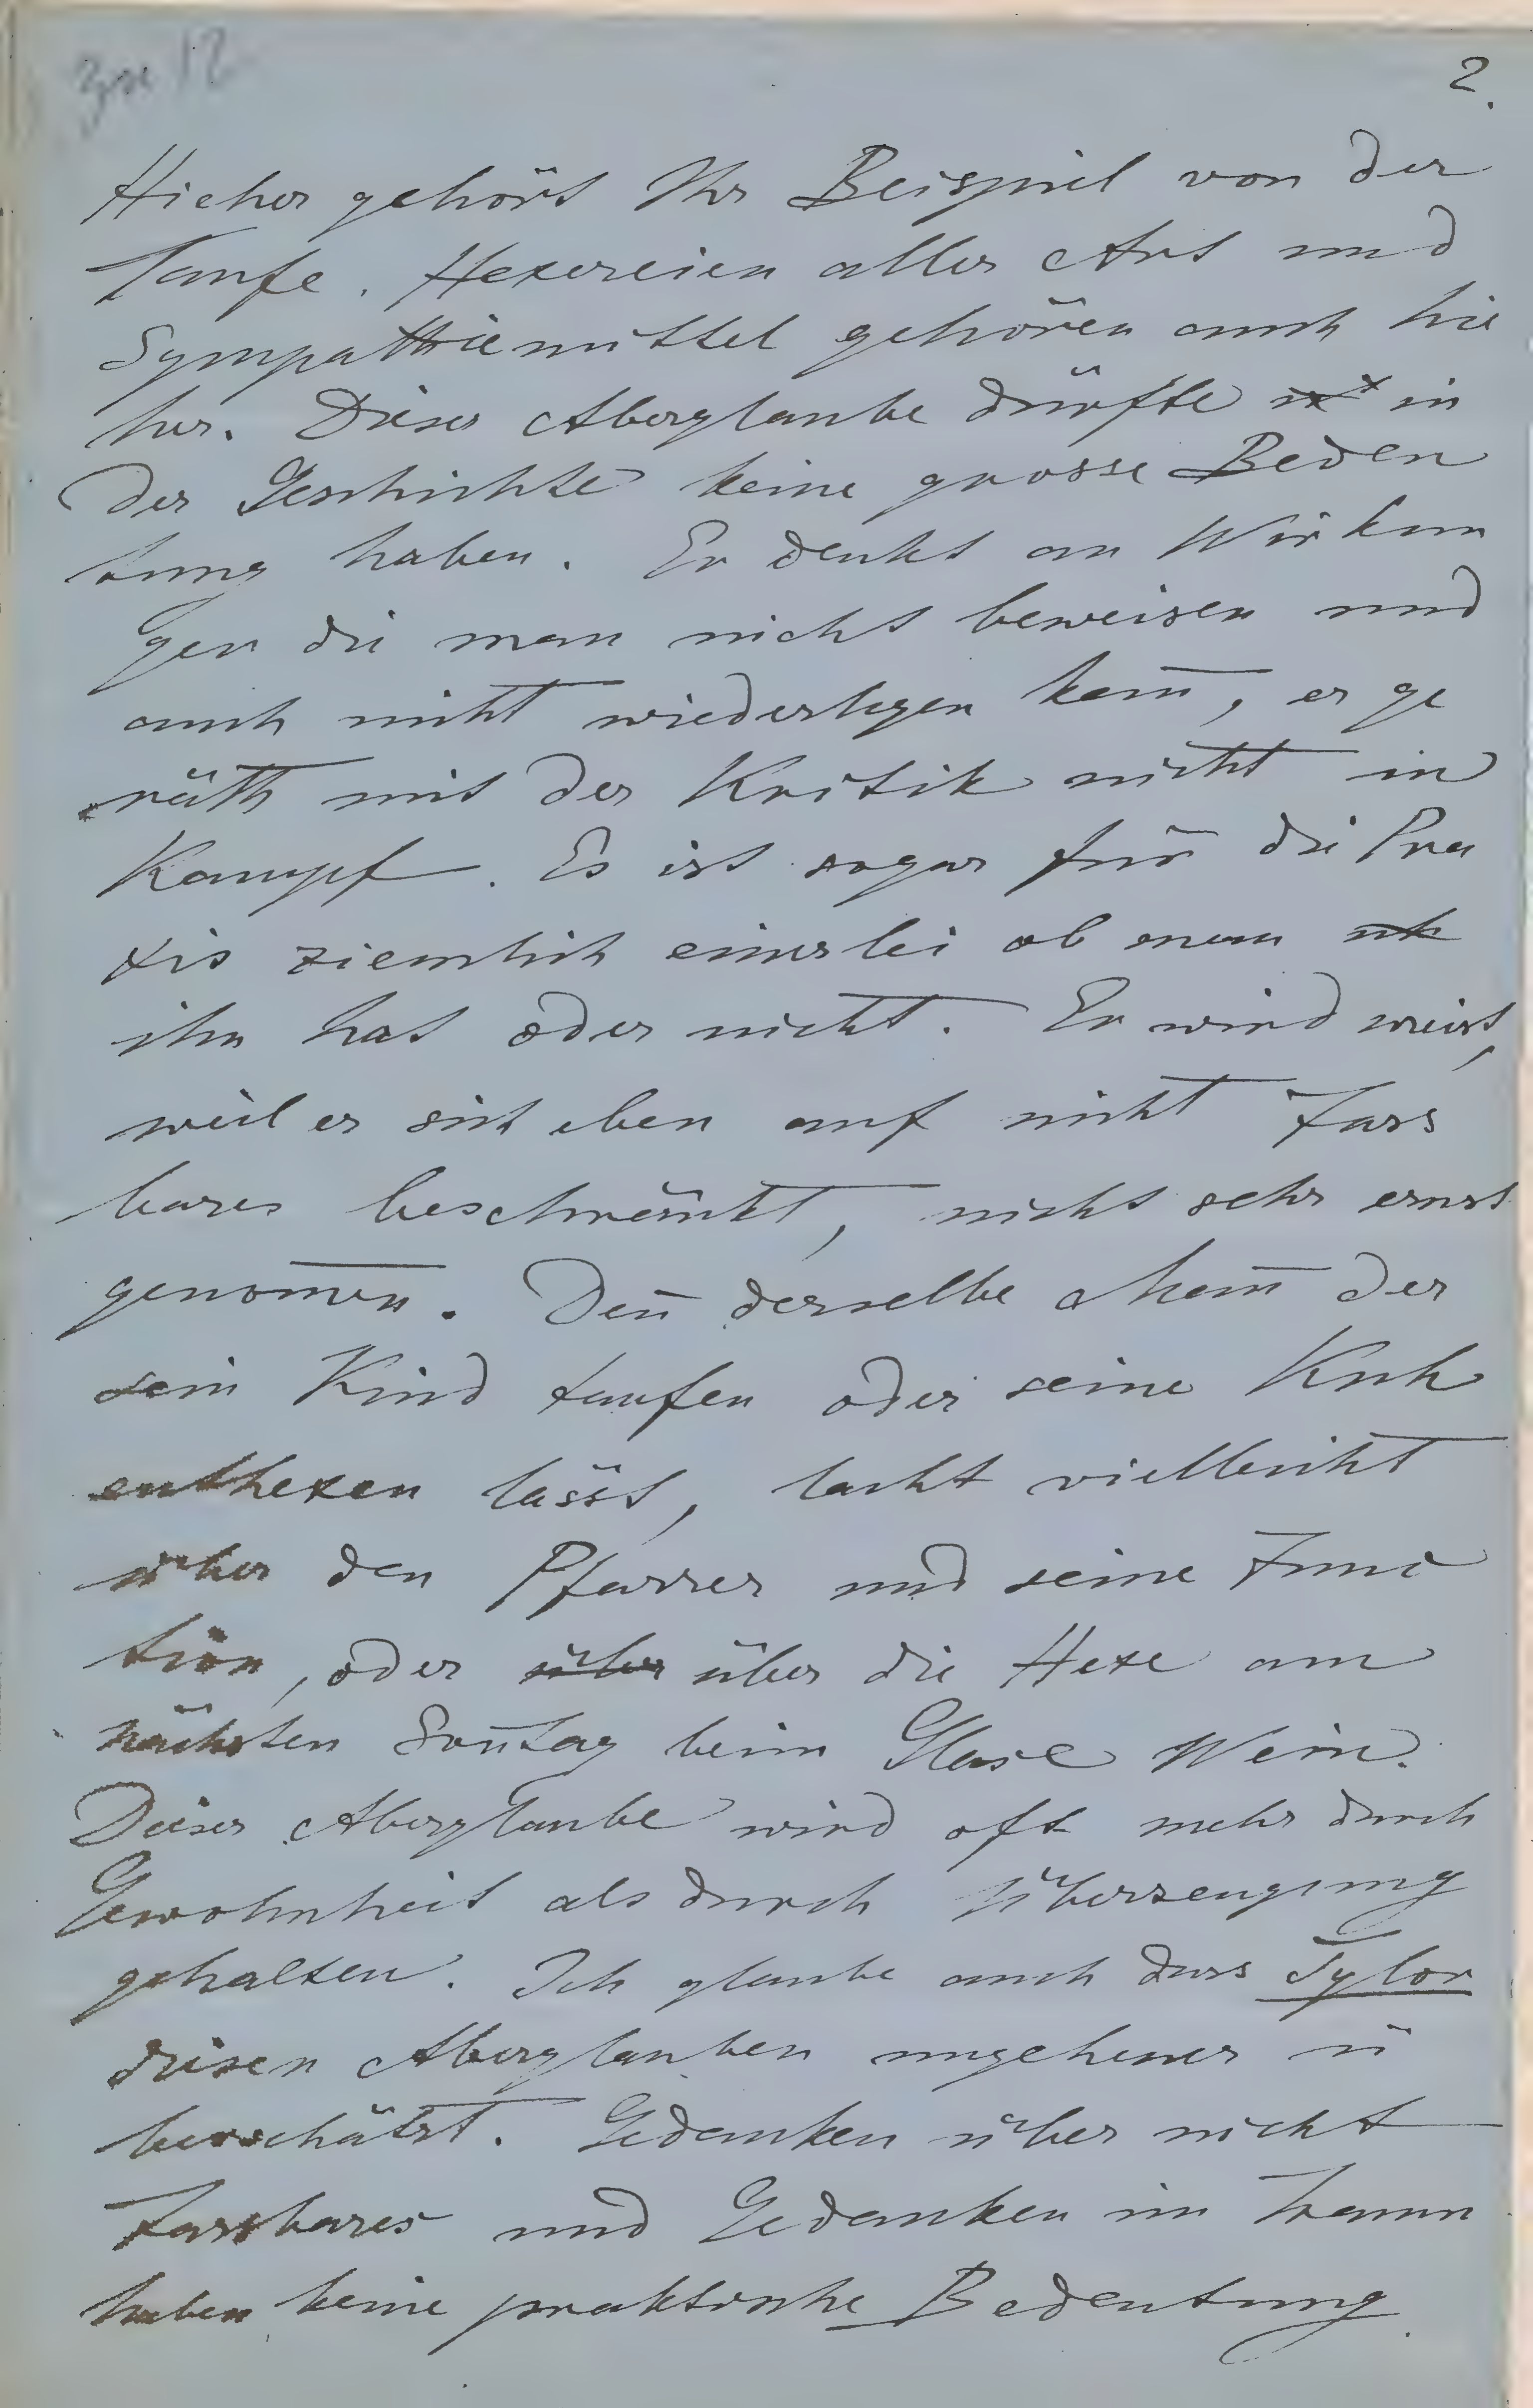 zu 12
2.
Hieher gehört Ihr Beispiel von der
Taufe. Hexereien aller Art und
Sympathiemittel gehören auch hie
her. Dieser Aberglaube dürfte in
der Geschichte keine grosse Bedeu
tung haben. Er denkt an Wirkun
gen die man nicht beweisen und
auch nicht wiederlegen kan̄, er ge
räth mit der Kritik nicht in
Kampf. Es ist sogar für die Pra
xis ziemlich einerlei ob man
ihn hat oder nicht. Er wird meist,
weil er sich eben auf nicht Fass
bares beschränkt, nicht sehr ernst
genom̄en. Den̄ derselbe Man̄ der
sein Kind taufen oder seine Kuh
enthexen lässt, lacht vielleicht
über den Pfarrer und seine Func
tion, oder über über die Hexe am
nächsten Son̄tag beim Glase Wein.
Dieser Aberglaube wird oft mehr durch
Gewohnheit als durch Überzeugung
gehalten. Ich glaube auch dass Tylor
diesen Aberglauben ungeheuer ü
berschätzt. Gedanken über nicht
Fassbares und Gedanken im Traum
haben keine praktische Bedeutung.